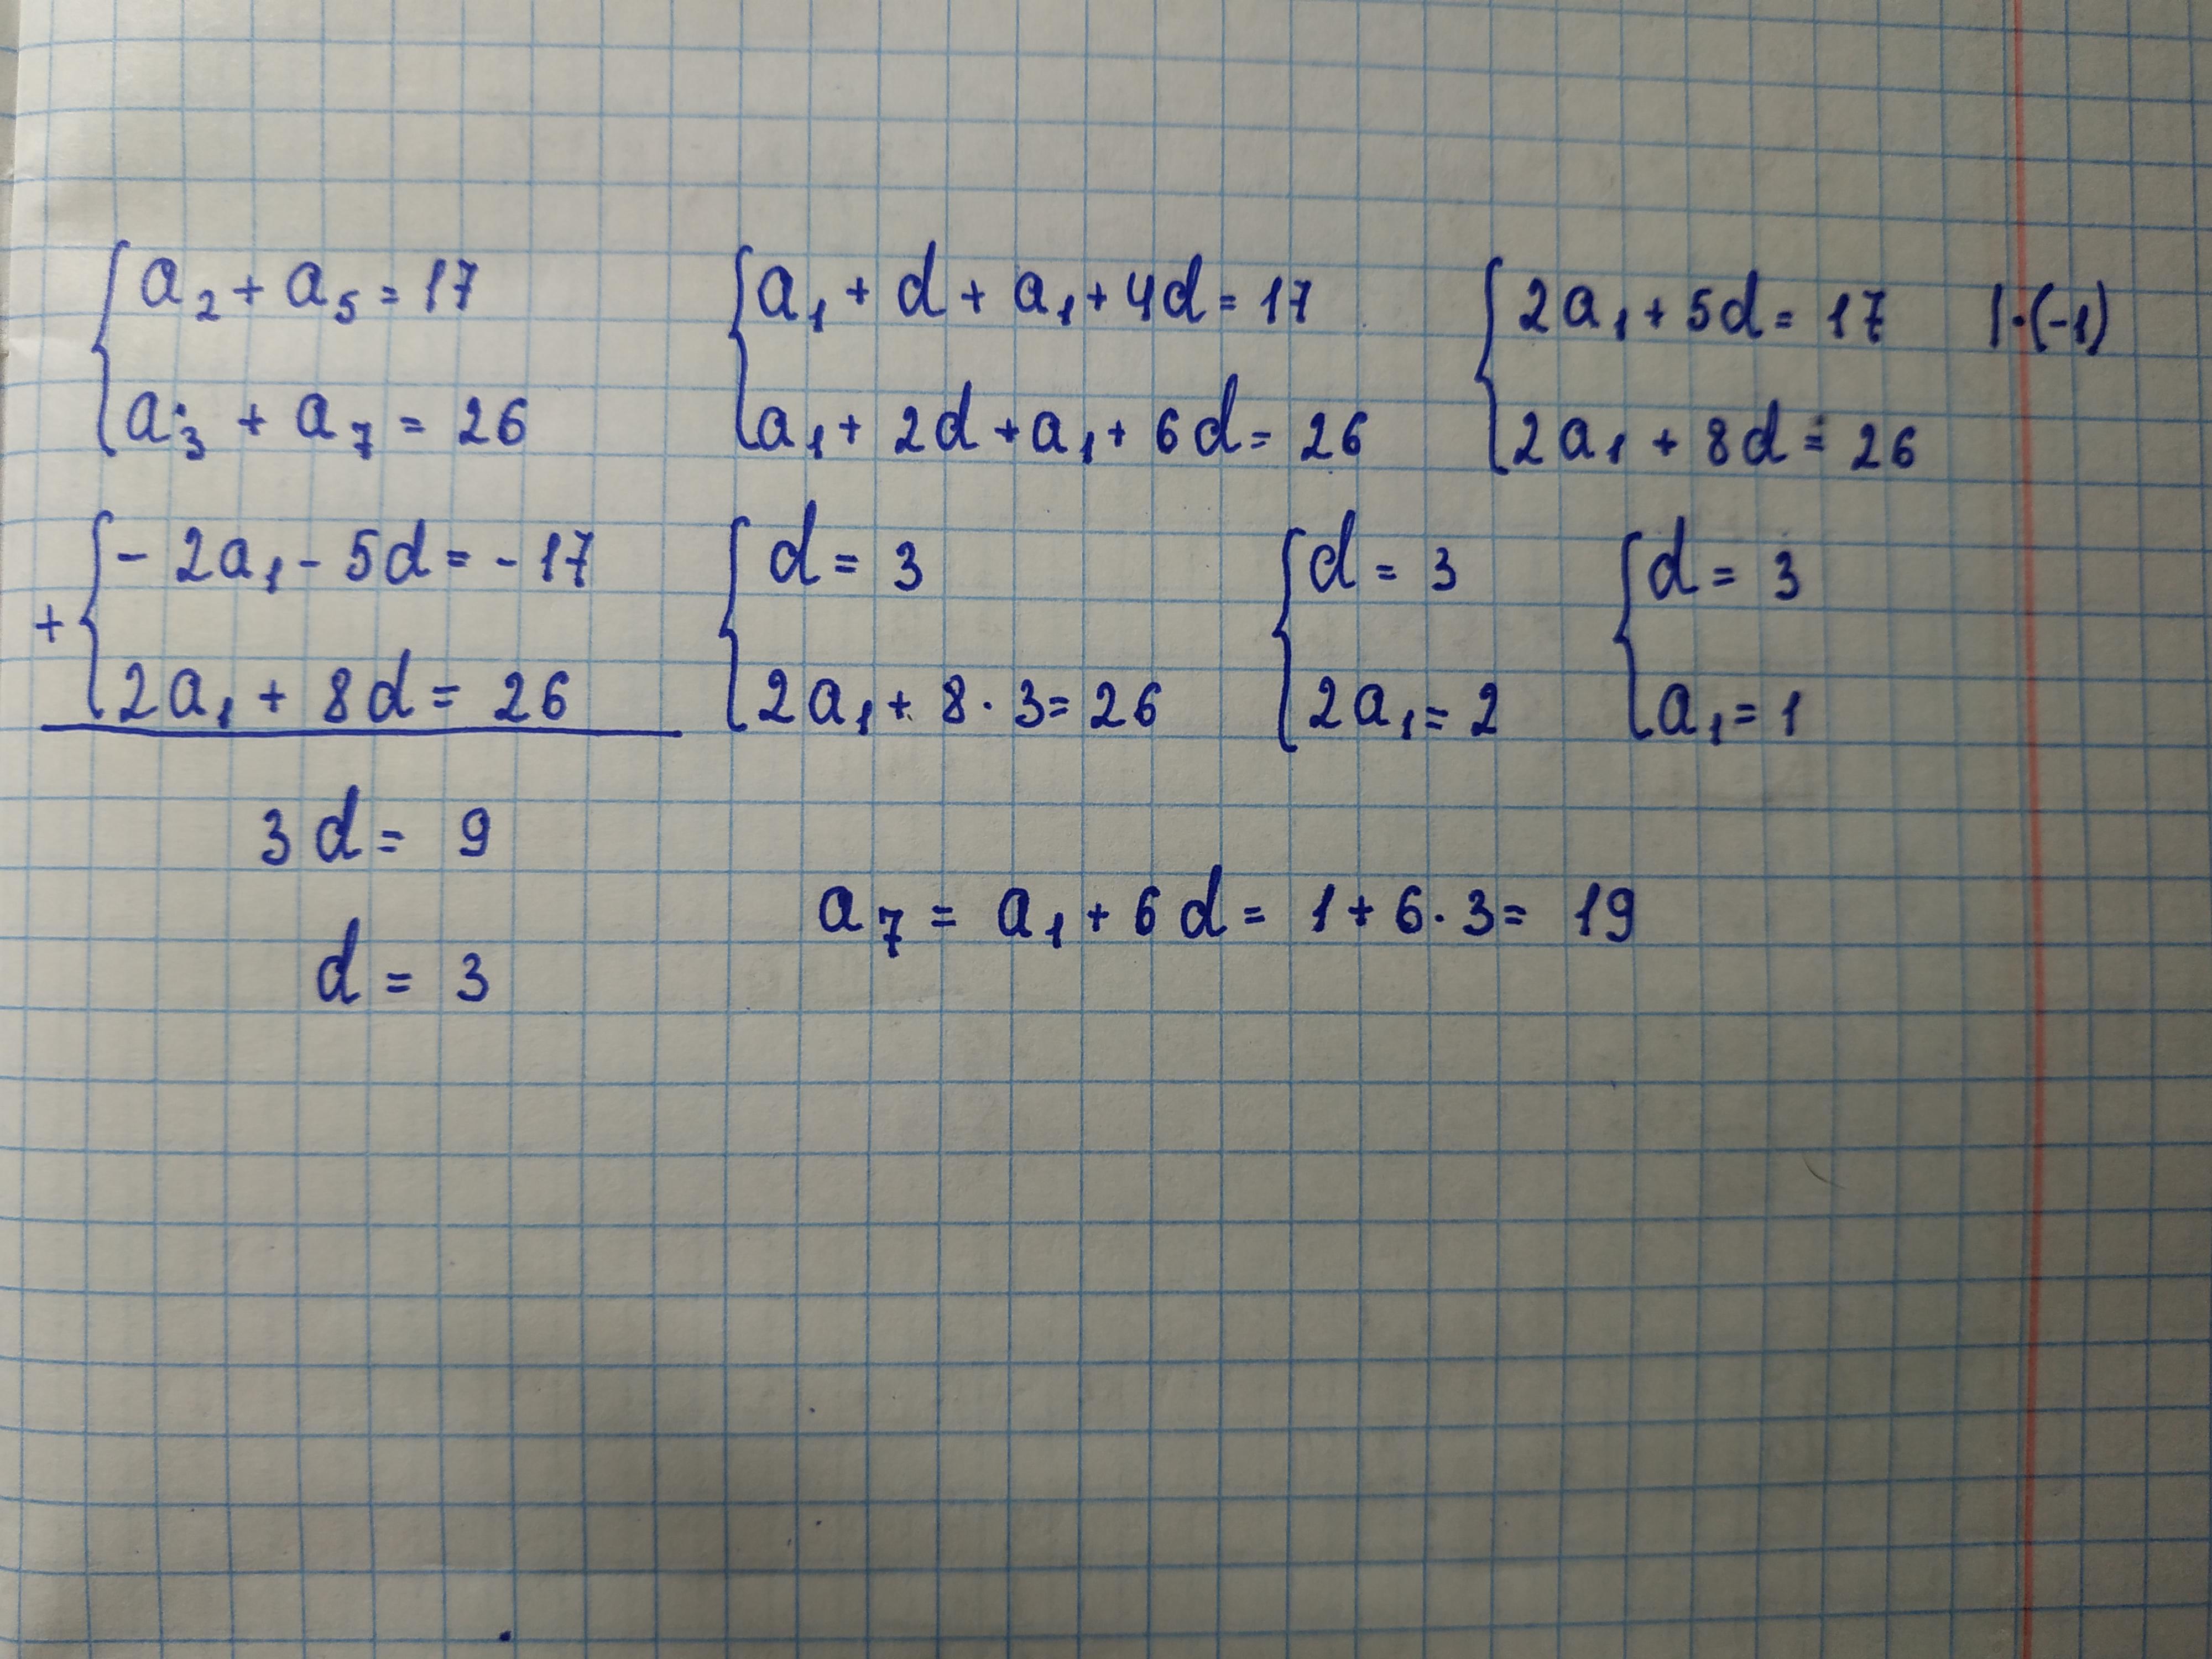 a₂ + a₅ = 17
a₃ + a₇ = 26
a₁ + d + a₁ + 4d = 17
a₁ + 2d + a₁ + 6d = 26
2a₁ + 5d = 17 | · (-1)
2a₁ + 8d = 26
+
- 2a₁ - 5d = - 17
2a₁ + 8d = 26
3d = 9
d = 3
d = 3
2a₁ + 8 · 3 = 26
d = 3
2a₁ = 2
d = 3
a₁ = 1
a₇ = a₁ + 6d = 1 + 6 · 3 = 19